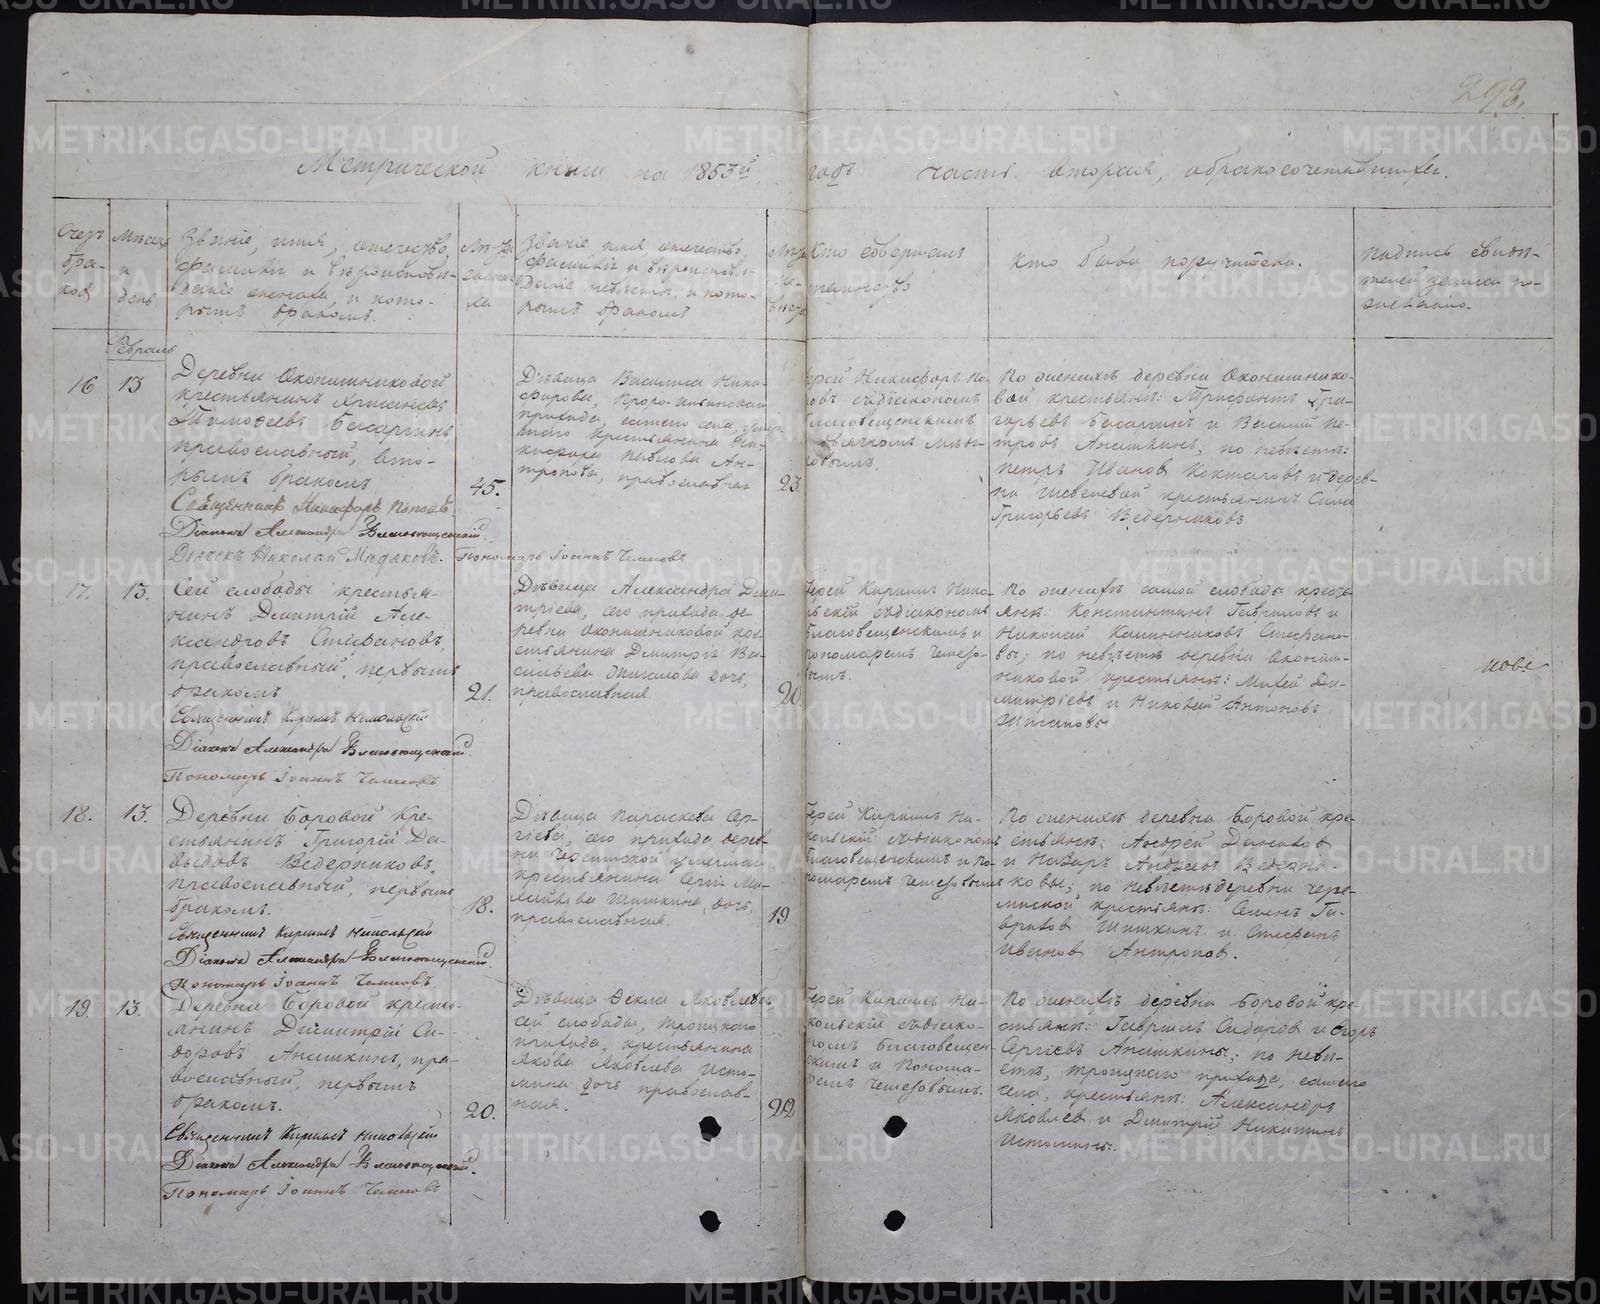 298.
Метрической книги на 1853й годъ часть вторая, о бракосочетавшихся.
Счетъ бра- ковъ
Мѣсяцъ и день
Званіе, имя, отечество,
фамилія и вѣроисповѣ-
даніе жениха, и кото-
рымъ бракомъ.
Званіе имя отечество
фамилія и вѣроисповѣ-
даніе невѣсты, и кото-
рымъ бракомъ
Кто совершалъ
таинство
Кто были поручители.
Подпись свидѣ-
телей записи по
желанію.
Февраль
16
13
Деревни Оконишниковой
крестьянинъ Хрисанфъ
Тимофеевъ Басаргинъ
православный, вто-
рымъ бракомъ
45.
Священникъ Никифоръ Поповъ
Діаконъ Александръ Благовещенскій
Дьячекъ Николай
Пономарь Іоаннъ
Дѣвица Василиса Ники-
форова, Пророк-Ильинскаго
прихода, самаго села, умер-
шаго крестьянина Ни-
кифора Павлова Ан-
тропова, православная
23.
Іерей Никифоръ По-
повъ съ діакономъ
Благовещенскимъ
По женихѣ деревни Оконишнико-
вой крестьяне: Трифонъ Гри-
горьевъ Басаргинъ и Василій Пе-
тровъ Анашкинъ, по невѣстѣ:
Петръ Ивановъ и дерев-
ни крестьянинъ Сила
Григорьевъ Ведерниковъ
17.
13.
Сей слободы крестья-
нинъ Дмитрій Але-
ксандровъ Стефановъ,
православный, первымъ
бракомъ
21.
Священникъ Кириллъ Никольскій
Діаконъ Александръ Благовещенскій.
Пономарь Іоаннъ
Дѣвица Александра Дми-
тріева, сего прихода де-
ревни Оконишниковой кре-
стьянина Дмитрія Ва-
сильева дочь,
православная
20.
Іерей Кириллъ Нико-
льскій съ діакономъ
Благовещенскимъ и
пономаремъ
По женихѣ самой слободы кресть-
яне: Константинъ Гавриловъ и
Николай Стефано-
вы; по невѣстѣ деревни Окониш-
никовой крестьяне: Михей Ди-
митріевъ и Антоновъ
18.
13.
Деревни Боровой Кре-
стьянинъ Григорій Да-
выдовъ Ведерниковъ,
православный, первымъ
бракомъ.
18.
Священникъ Кириллъ Никольскій
Діаконъ Александръ Благовещенскій.
Пономарь Іоаннъ
Дѣвица Параскева Сер-
гіева, сего прихода дерев-
ни Черемиской умершаго
крестьянина Сергія Ми-
хайлова Шишкина, дочь,
православная.
19
Іерей Кириллъ Ни-
кольскій съ діакономъ
Благовещенскимъ и по-
номаремъ
По женихѣ деревни Боровой кре-
стьяне: Андрей Даниловъ
и Назаръ Андреевъ Ведерни-
ковы; по невѣстѣ деревни Чере-
миской крестьяне: Семенъ Га-
вриловъ Шишкинъ и Стефанъ
Ивановъ Антроповъ.
19.
13.
Деревни Боровой кресть-
янинъ Димитрій Си-
доровъ Анашкинъ, пра-
вославный, первымъ
бракомъ.
20.
Священникъ Кириллъ Никольскій
Діаконъ Александръ Благовещенскій.
Пономарь Іоаннъ
Дѣвица Ѳекла Яковлева
сей слободы, Троицкаго
прихода, крестьянина
Якова Яковлева Исто-
мина дочь православ-
ная.
22
Іерей Кириллъ Ни-
кольскій съ діако-
номъ Благовещен-
скимъ и Понома-
ремъ
По женихѣ деревни Боровой кре-
стьяне: Гавриилъ Сидоровъ и Егоръ
Сергіевъ Анашкины; по невѣ-
стѣ, Троицкаго прихода, самаго
села, крестьяне: Александръ
Яковлевъ и Дмитрій Никитинъ
Истомины.
METRIKI.GASO-URAL.RU